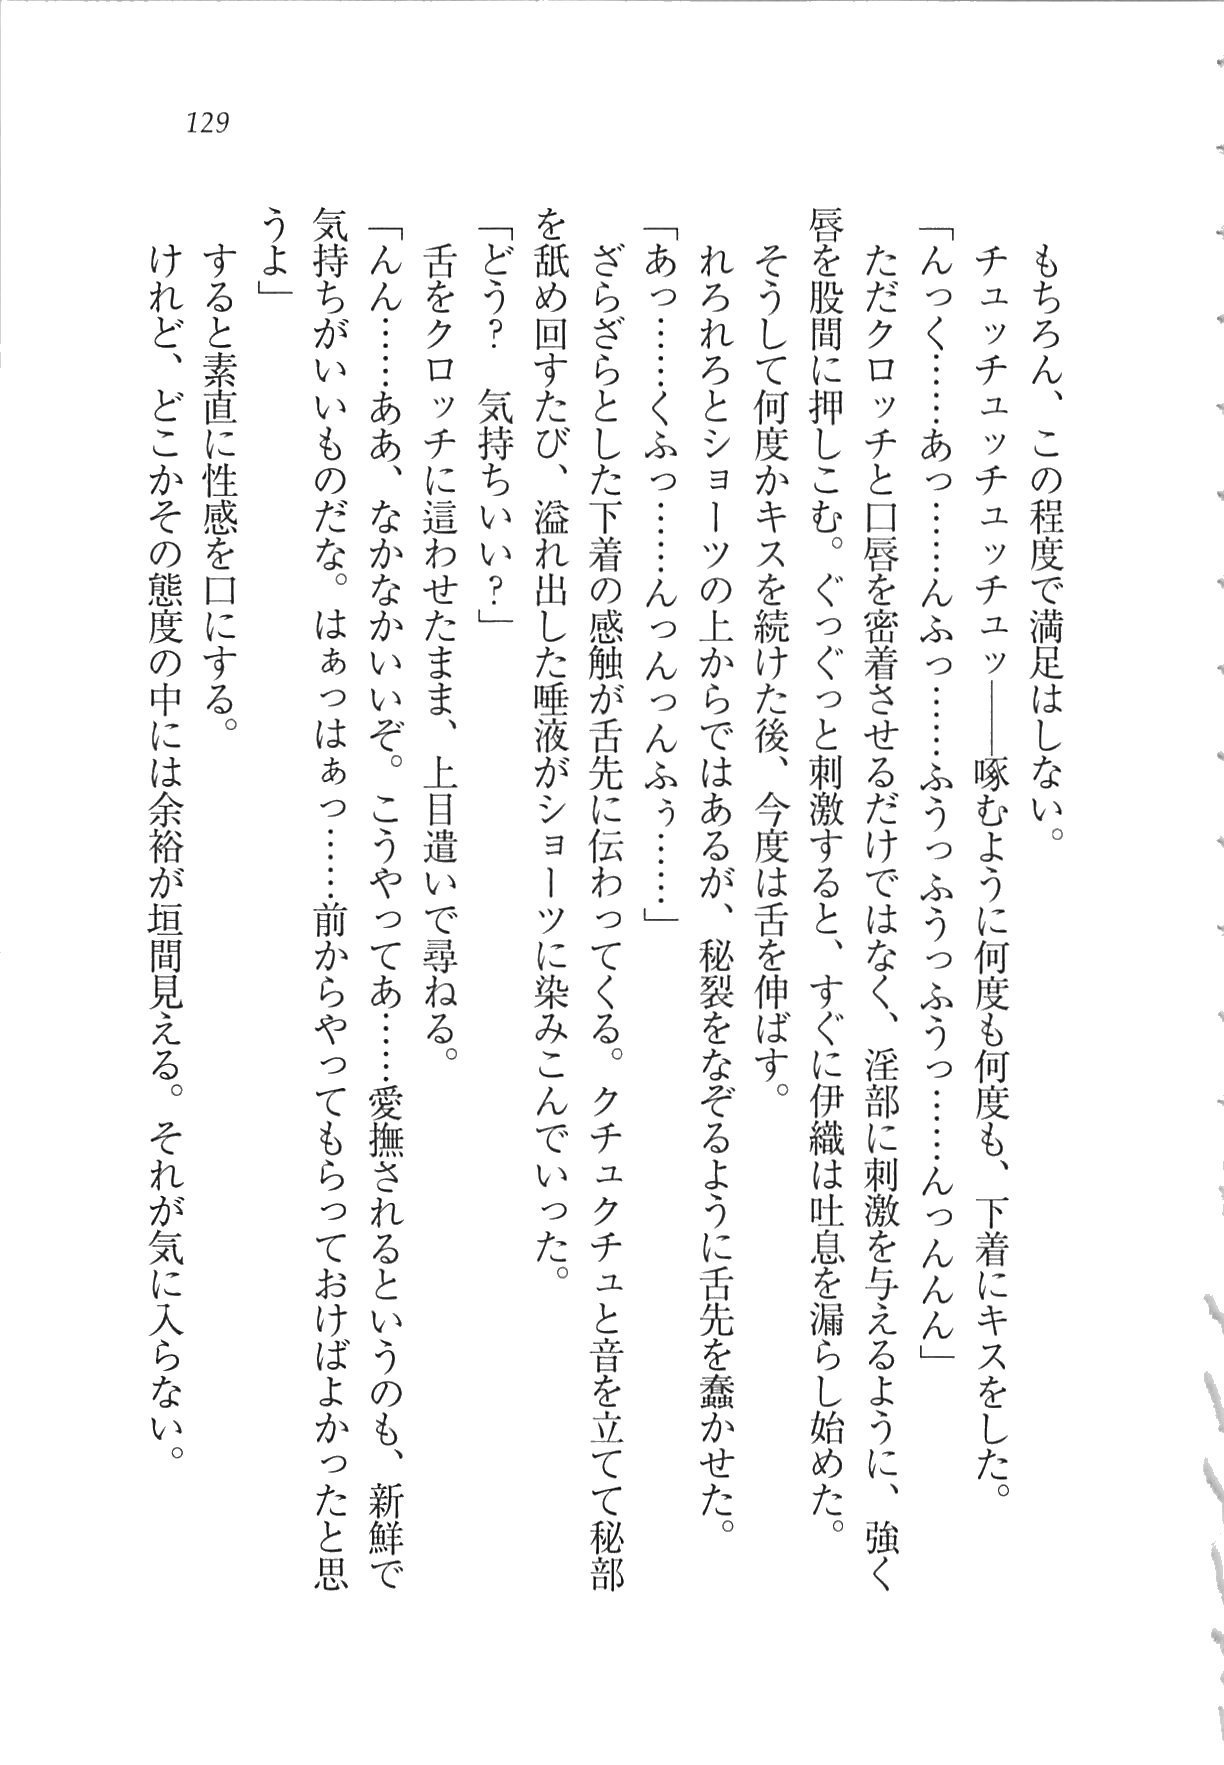 129
もちろん、この程度で満足はしない。
チュッチュッチュッチュッ――啄むように何度も何度も、下着にキスをした。
「んっく……あっ……んふっ……ふうっふうっふうっ……んっんんん」
ただクロッチと口唇を密着させるだけではなく、淫部に刺激を与えるように、強く
唇を股間に押しこむ。ぐっぐっと刺激すると、すぐに伊織は吐息を漏らし始めた。
そうして何度かキスを続けた後、今度は舌を伸ばす。
れろれろとショーツの上からではあるが、秘裂をなぞるように舌先を蠢かせた。
「あっ……くふっ……んっんっんふぅ……」
ざらざらとした下着の感触が舌先に伝わってくる。クチュクチュと音を立てて秘部
を舐め回すたび、溢れ出した唾液がショーツに染みこんでいった。
「どう？　気持ちいい？」
舌をクロッチに這わせたまま、上目遣いで尋ねる。
「んん……ああ、なかなかいいぞ。こうやってあ……愛撫されるというのも、新鮮で
気持ちがいいものだな。はぁっはぁっ……前からやってもらっておけばよかったと思
うよ」
すると素直に性感を口にする。
けれど、どこかその態度の中には余裕が垣間見える。それが気に入らない。